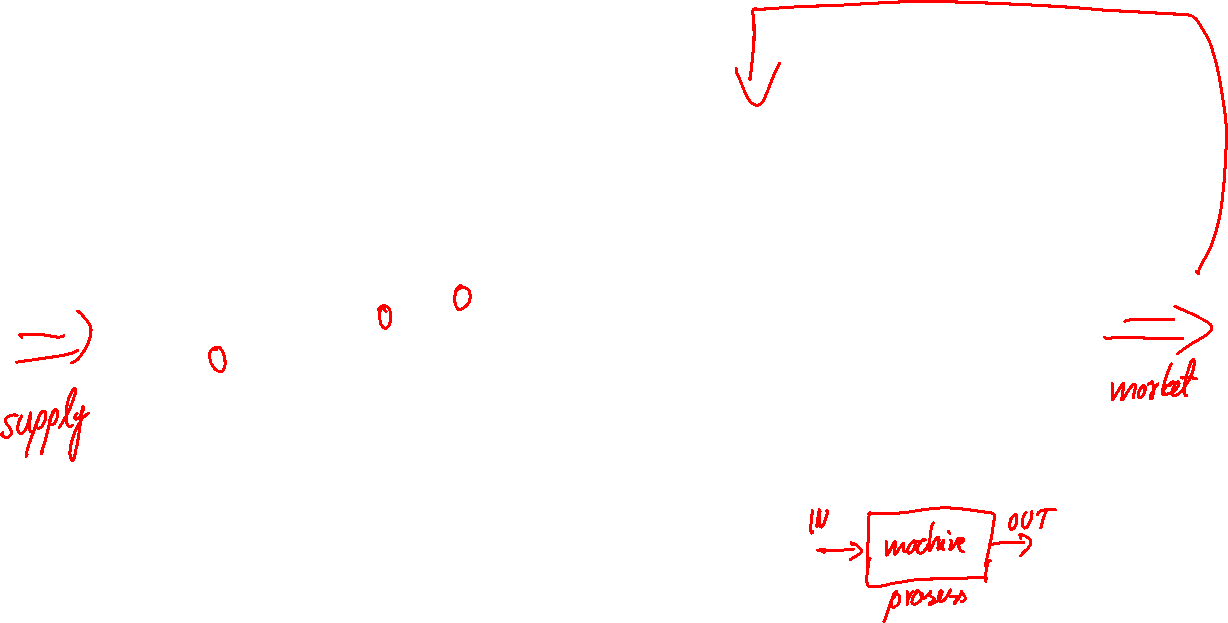 supply
market
IN
machine
OUT
prosess